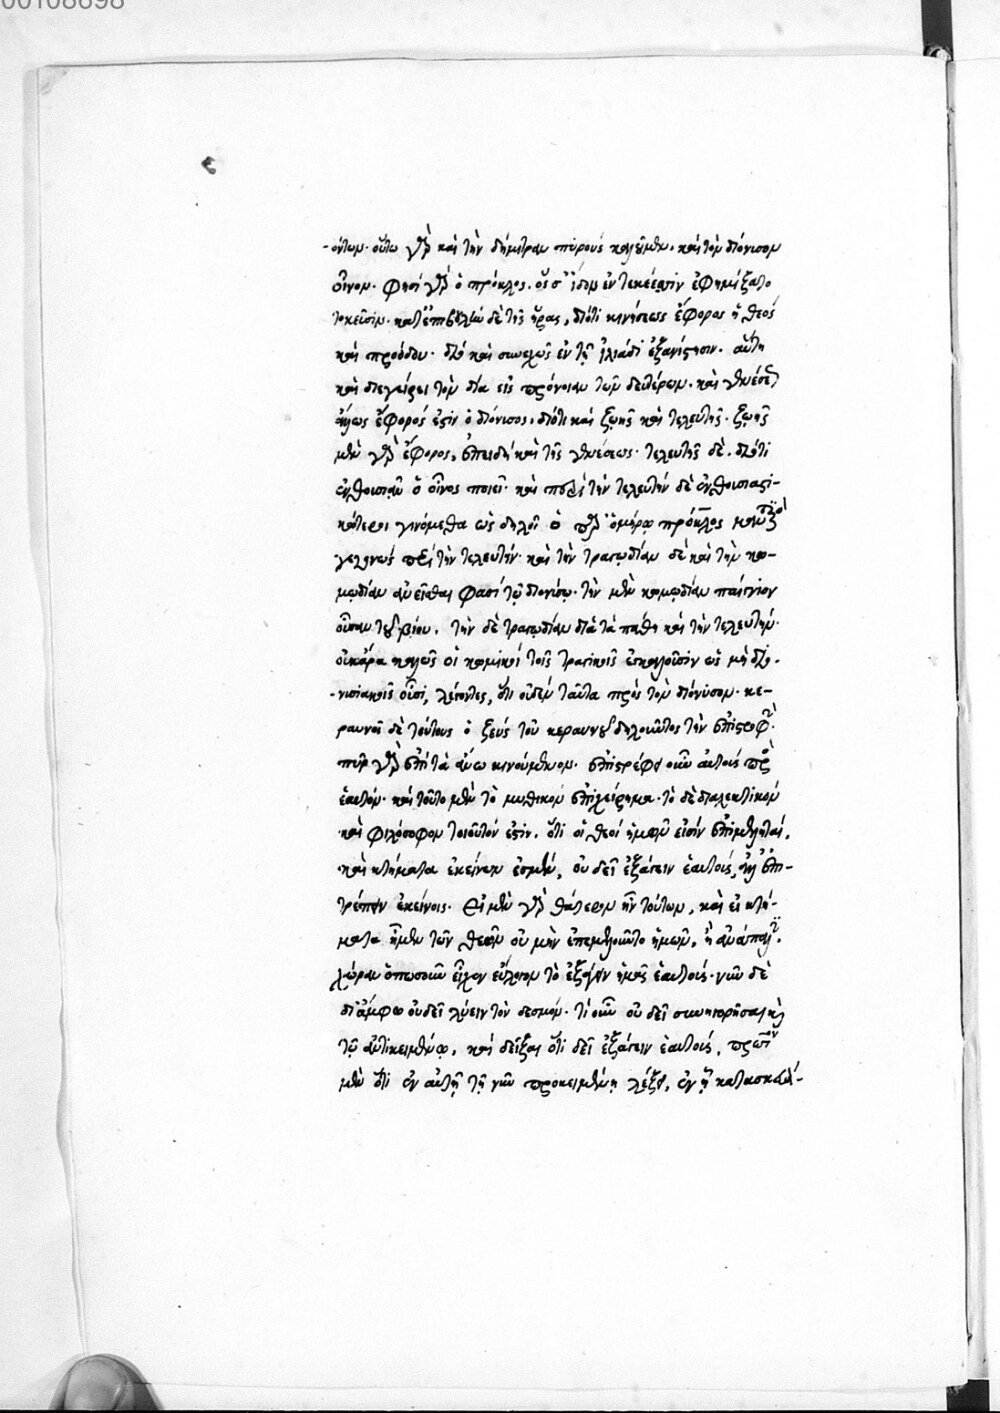 00108698
ε
-όντων· οὕτω γὰρ καὶ τὴν δήμητραν πυρούς καλοῦμεν· καὶ τὸν διόνισον
οἶνον· φησί γὰρ ὁ πρόκλος. ὅσσ' ἴδον ἐν τεκέεσσιν ἐφημίξατο
τοκεῦσιν· κατ' ἐπιβουλὴν δὲ τῆς ἥρας, διότι κινήσεως ἔφορος ἡ θεός
καὶ προόδου· διὸ καὶ συνεχῶς ἐν τῇ ἰλιάδι ἐξανίστησιν αὕτη
καὶ διεγείρει τὸν δία εἰς πρόνοιαν τῶν δευτέρων· καὶ γενέσεως
ἄλλως ἔφορός ἐστιν ὁ διόνισος, διότι καὶ ζωῆς καὶ τελευτῆς· ζωῆς
μὲν γὰρ ἔφορος, ἐπειδὴ καὶ τῆς γενέσεως· τελευτῆς δὲ, διότι
ἐνθουσιᾷν ὁ οἶνος ποιεῖ· καὶ περὶ τὴν τελευτὴν δὲ ἐνθουσιαστι-
κώτεροι γινόμεθα ὡς δηλοῖ ὁ παρ' ὁμήρῳ πρόκλος
γεγονὼς περὶ τὴν τελευτήν· καὶ τὴν τραγῳδίαν δὲ καὶ τὴν κω-
μῳδίαν ἀνεῖσθαι φασὶ τῷ διονίσῳ· τὴν μὲν κωμῳδίαν παίγνιον
οὖσαν τοῦ βίου, τὴν δὲ τραγῳδίαν διὰ τὰ πάθη καὶ τὴν τελευτήν·
οὐκ ἄρα καλῶς οἱ κωμικοὶ τοῖς τραγικοῖς ἐγκαλοῦσιν ὡς μὴ διο-
-νισιακοῖς οὖσι, λέγοντες, ὅτι οὐδὲν ταῦτα πρὸς τὸν διόνυσον· κε-
ραυνοῖ δὲ τούτους ὁ ζεύς τοῦ κεραυνοῦ δηλοῦντος τὴν ἐπιστροφήν·
πῦρ γὰρ ἐπὶ τὰ ἄνω κινούμενον· ἐπιστρέφει οὖν αὐτοὺς πρὸς
ἑαυτόν· καὶ τοῦτο μὲν τὸ μυθικὸν ἐπιχείρημα· τὸ δὲ διαλεκτικὸν
καὶ φιλόσοφον τοιοῦτόν ἐστιν, ὅτι οἱ θεοὶ ἡμῶν εἰσὶν ἐπιμεληταί,
καὶ κτήματα ἐκείνων ἐσμέν, οὐ δεῖ ἐξάγειν ἑαυτούς, ἀλλ' ἐπι-
τρέπειν ἐκείνοις· εἰ μὲν γὰρ θάτερον ἦν τούτων, καὶ εἰ κτή-
ματα ἦμεν τῶν θεῶν οὐ μὴν ἐπεμελοῦντο ἡμῶν, ἢ ἀνάπαλιν,
χώραν ὁπωσοῦν εἶχεν εὔλογον τὸ ἐξάγειν ἡμᾶς ἑαυτούς· νῦν δὲ
δι' ἄμφω οὐ δεῖ λύειν τὸν δεσμόν· τί οὖν οὐ δεῖ συνηγορῆσαι καὶ
τῷ ἀντικειμένῳ, καὶ δεῖξαι ὅτι δεῖ ἐξάγειν ἑαυτούς, πρῶτον
μὲν ὅτι ἐν αὐτῇ τῇ νῦν προκειμένῃ λέξει, ἐν ᾗ κατασκευά-